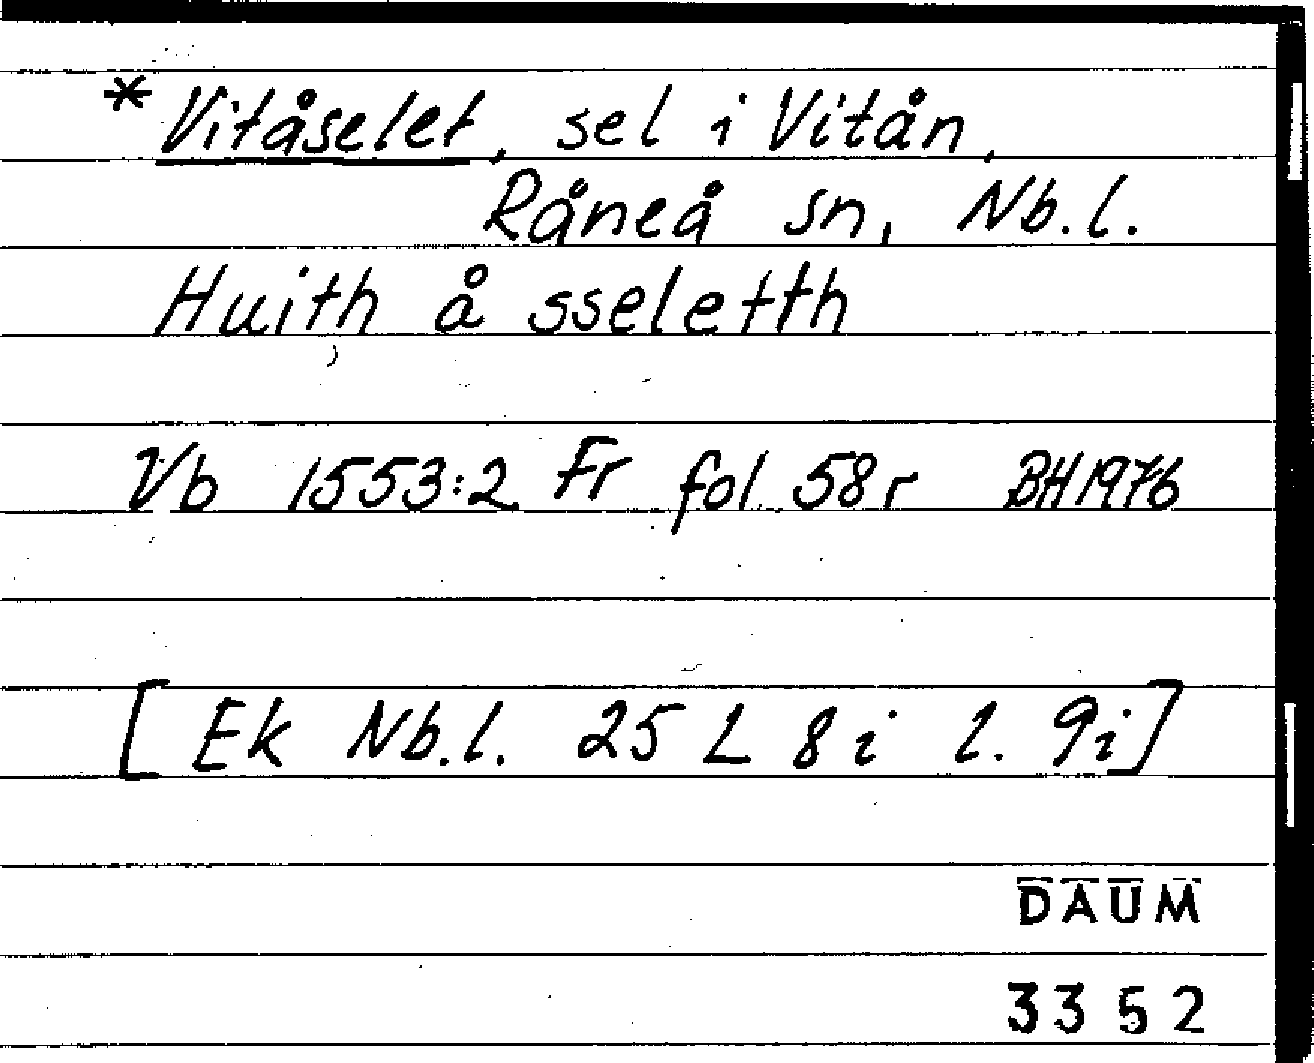 * Vitåselet, sel i Vitån,
Råneå sn, Nb.l.
Huith å sseletth
Vb 1553:2 Fr fol. 58r BH 1976
[Ek Nb.l. 25 L 8i l. 9i]
DAUM
3352